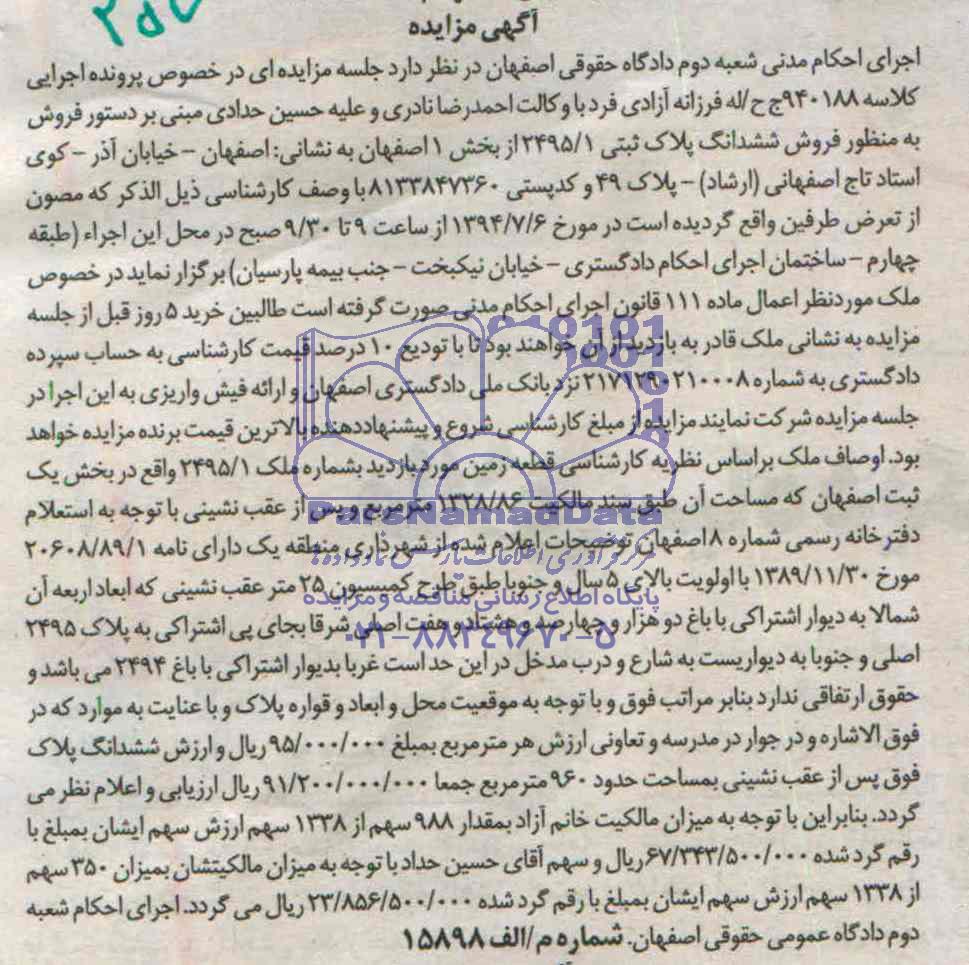 آگهی مزایده
اجرای احکام مدنی شعبه دوم دادگاه حقوقی اصفهان در نظر دارد جلسه مزایده ای در خصوص پرونده اجرایی
کلاسه ۹۴۰۱۸۸ج ح/له فرزانه آزادی فرد با وکالت احمدرضا نادری و علیه حسین حدادی مبنی بر دستور فروش
به منظور فروش ششدانگ پلاک ثبتی ۲۴۹۵/۱ از بخش ۱ اصفهان به نشانی: اصفهان – خیابان آذر – کوی
استاد تاج اصفهانی (ارشاد) – پلاک ۴۹ و کدپستی ۸۱۳۳۸۴۷۳۶۰ با وصف کارشناسی ذیل الذکر که مصون
از تعرض طرفین واقع گردیده است در مورخ ۱۳۹۴/۷/۶ از ساعت ۹ تا ۹/۳۰ صبح در محل این اجراء (طبقه
چهارم – ساختمان اجرای احکام دادگستری – خیابان نیکبخت – جنب بیمه پارسیان) برگزار نماید در خصوص
ملک موردنظر اعمال ماده ۱۱۱ قانون اجرای احکام مدنی صورت گرفته است طالبین خرید ۵ روز قبل از جلسه
مزایده به نشانی ملک قادر به بازدید از آن خواهند بود تا با تودیع ۱۰ درصد قیمت کارشناسی به حساب سپرده
دادگستری به شماره ۲۱۷۱۲۹۰۲۱۰۰۰۸ نزد بانک ملی دادگستری اصفهان و ارائه فیش واریزی به این اجرا در
جلسه مزایده شرکت نمایند مزایده از مبلغ کارشناسی شروع و پیشنهاددهنده بالاترین قیمت برنده مزایده خواهد
بود. اوصاف ملک براساس نظریه کارشناسی قطعه زمین مورد بازدید بشماره ملک ۲۴۹۵/۱ واقع در بخش یک
ثبت اصفهان که مساحت آن طبق سند مالکیت ۱۳۲۸/۸۶ مترمربع و پس از عقب نشینی با توجه به استعلام
دفترخانه رسمی شماره ۸ اصفهان توضیحات اعلام شده از شهرداری منطقه یک دارای نامه ۲۰۶۰۸/۸۹/۱
مورخ ۱۳۸۹/۱۱/۳۰ با اولویت بالای ۵ سال و جنوبا طبق طرح کمیسیون ۲۵ متر عقب نشینی که ابعاد اربعه آن
شمالا به دیوار اشتراکی با باغ دو هزار و چهارصد و هشتاد و هفت اصلی شرقا بجای پی اشتراکی به پلاک ۲۴۹۵
اصلی و جنوبا به دیواریست به شارع و درب مدخل در این حد است غربا بدیوار اشتراکی با باغ ۲۴۹۴ می باشد و
حقوق ارتفاقی ندارد بنابر مراتب فوق و با توجه به موقعیت محل و ابعاد و قواره پلاک و با عنایت به موارد که در
فوق الاشاره و در جوار در مدرسه و تعاونی ارزش هر مترمربع بمبلغ ۹۵/۰۰۰/۰۰۰ ریال و ارزش ششدانگ پلاک
فوق پس از عقب نشینی بمساحت حدود ۹۶۰ مترمربع جمعا ۹۱/۲۰۰/۰۰۰/۰۰۰ ریال ارزیابی و اعلام نظر می
گردد. بنابراین با توجه به میزان مالکیت خانم آزاد بمقدار ۹۸۸ سهم از ۱۳۳۸ سهم ارزش سهم ایشان بمبلغ با
رقم گرد شده ۶۷/۳۴۳/۵۰۰/۰۰۰ ریال و سهم آقای حسین حداد با توجه به میزان مالکیتشان بمیزان ۳۵۰ سهم
از ۱۳۳۸ سهم ارزش سهم ایشان بمبلغ با رقم گرد شده ۲۳/۸۵۶/۵۰۰/۰۰۰ ریال می گردد. اجرای احکام شعبه
دوم دادگاه عمومی حقوقی اصفهان. شماره م/الف ۱۵۸۹۸
ParsNamadData
پایگاه اطلاع رسانی مناقصه و مزایده
۰۲۱-۸۸۳۴۹۶۷۰-۵